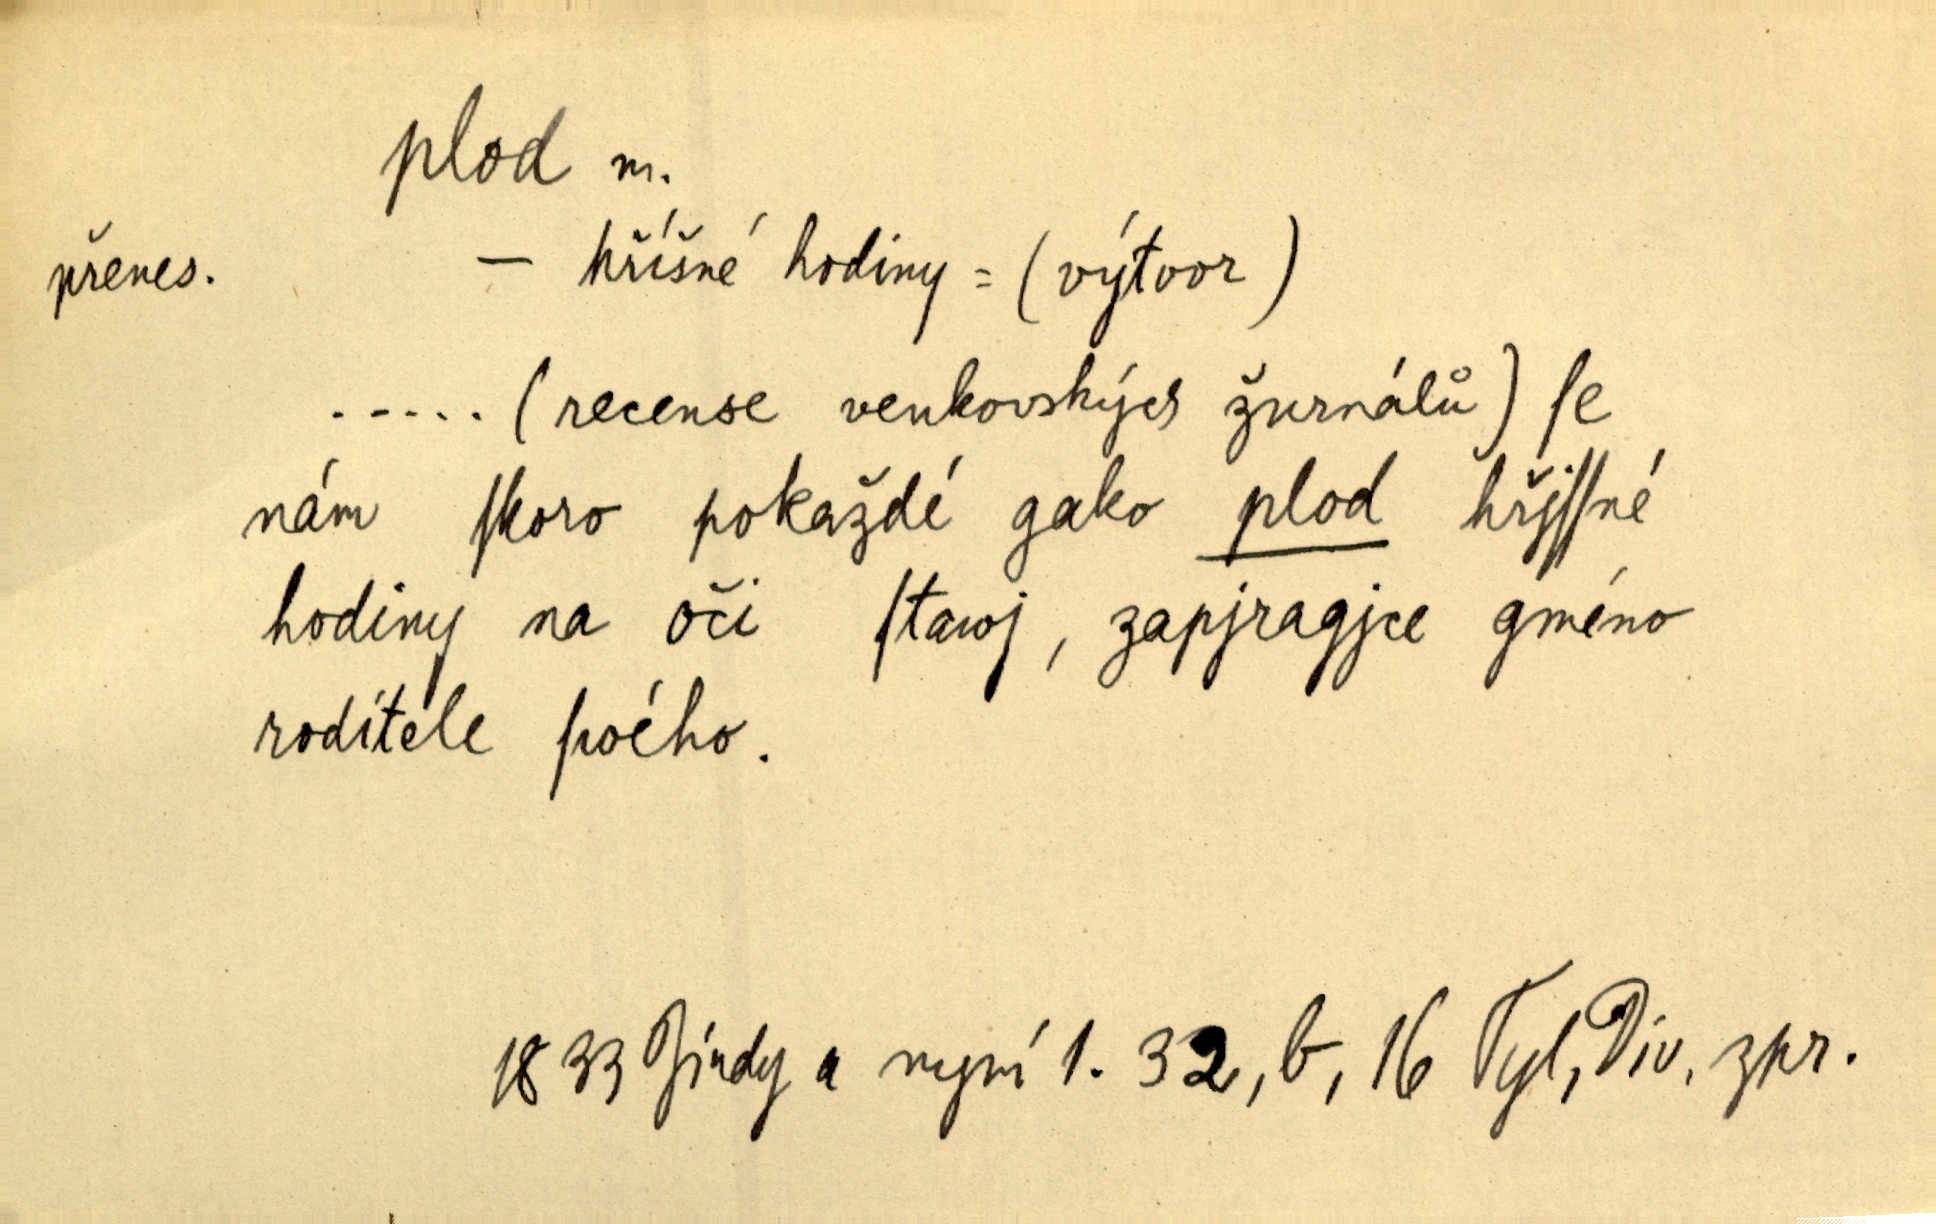 plod m.
přenes. — hříšné hodiny = (výtvor)
..... (recense venkovských žurnálů) ſe
nám ſkoro pokaždé gako plod hřjſſné
hodiny na oči ſtawj, zapjragjce gméno
roditele ſwého.
1833 Jindy a nyní 1. 32, b, 16 Tyl, Div. zpr.